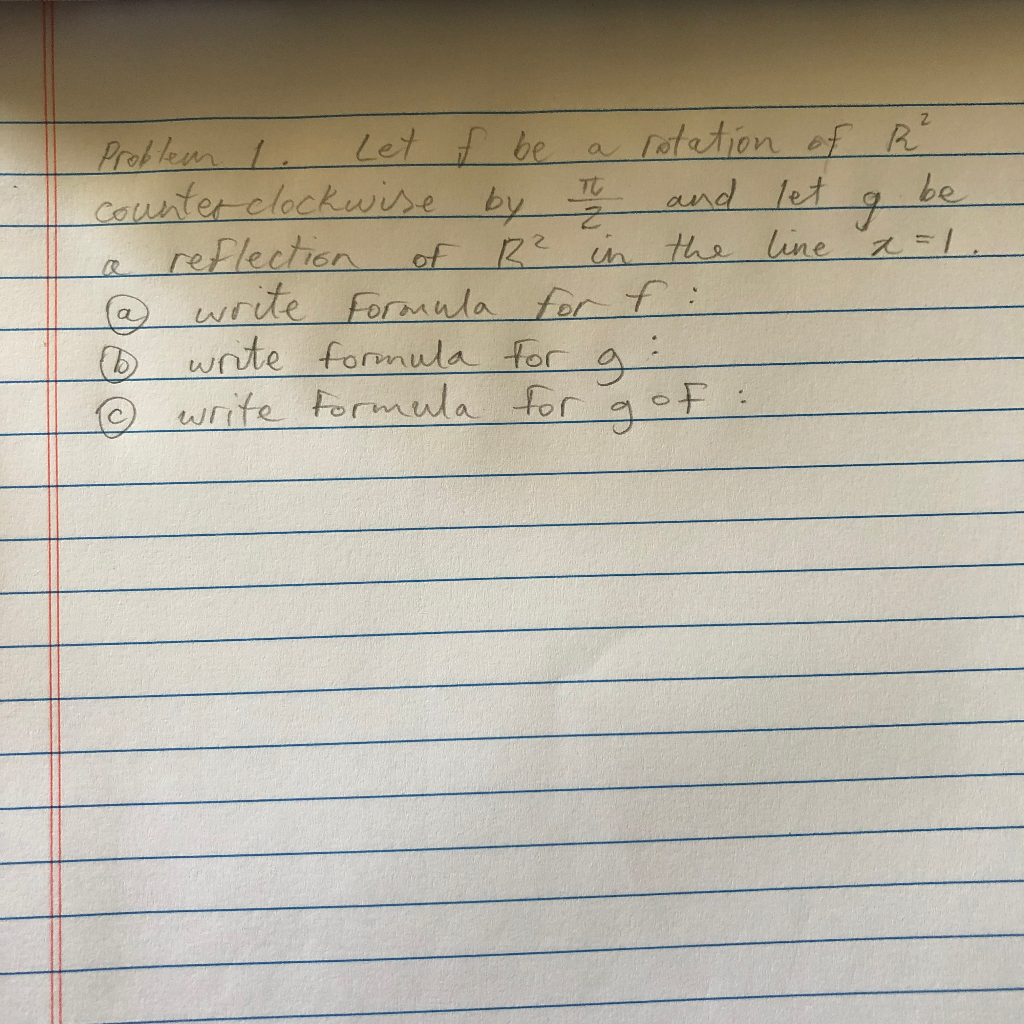 Problem 1. Let f be a rotation of R²
counterclockwise by π/2 and let g be
a reflection of R² in the line x=1.
ⓐ write formula for f :
ⓑ write formula for g :
ⓒ write formula for g∘f :